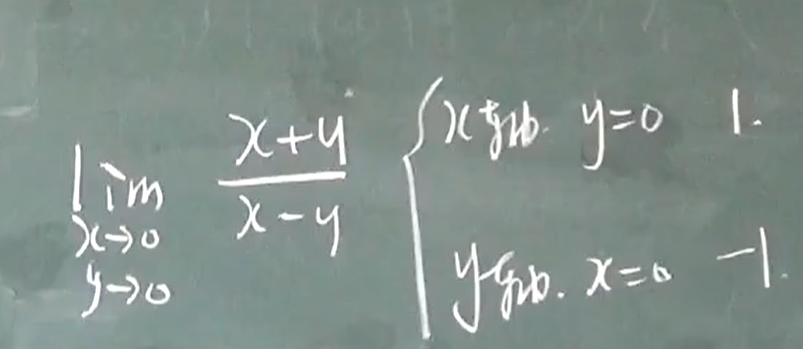 lim x→0 y→0 (x+y)/(x-y) {
x轴. y=0 1.
y轴. x=0 -1.